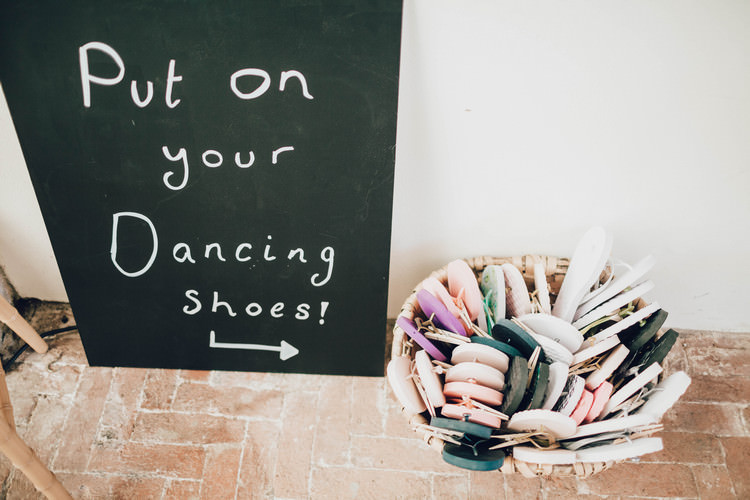 Put on
your
Dancing
shoes!